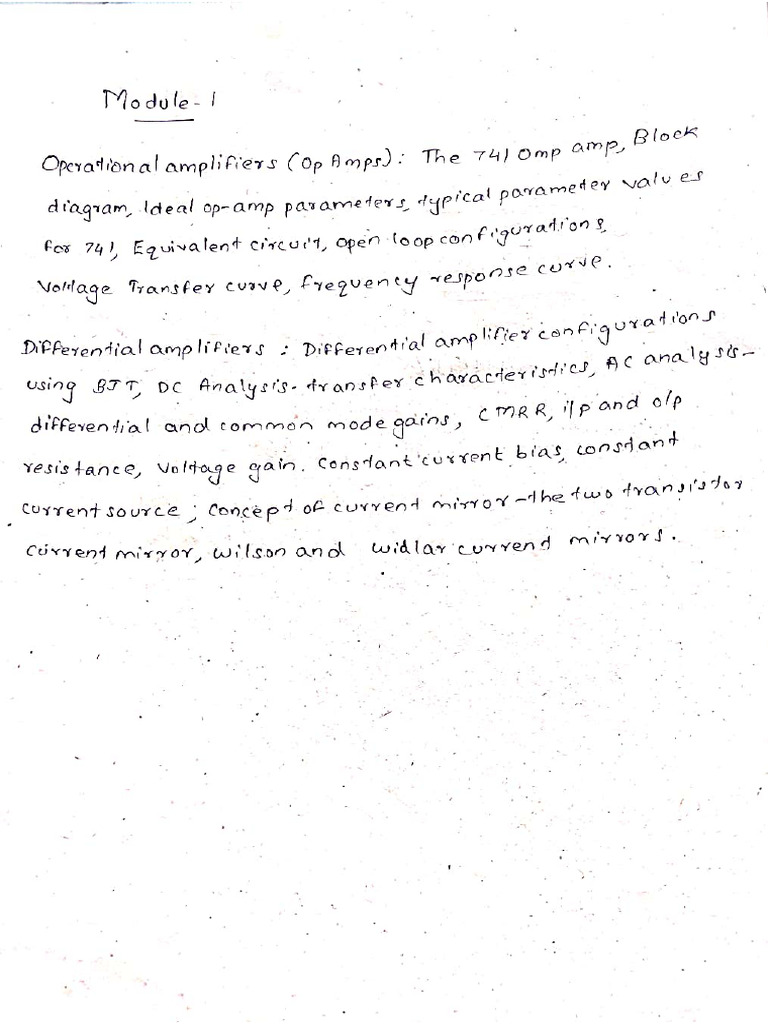 Module - 1
Operational amplifiers (Op Amps): The 741 Omp amp, Block
diagram, Ideal op-amp parameters, typical parameter values
for 741, Equivalent circuit, open loop configurations,
Voltage Transfer curve, frequency response curve.
Differential amplifiers : Differential amplifier configurations
using BJT, DC Analysis- transfer characteristics, AC analysis-
differential and common mode gains, CMRR, i/p and o/p
resistance, Voltage gain. Constant current bias, constant
current source; Concept of current mirror-the two transistor
current mirror, wilson and widlar current mirrors.